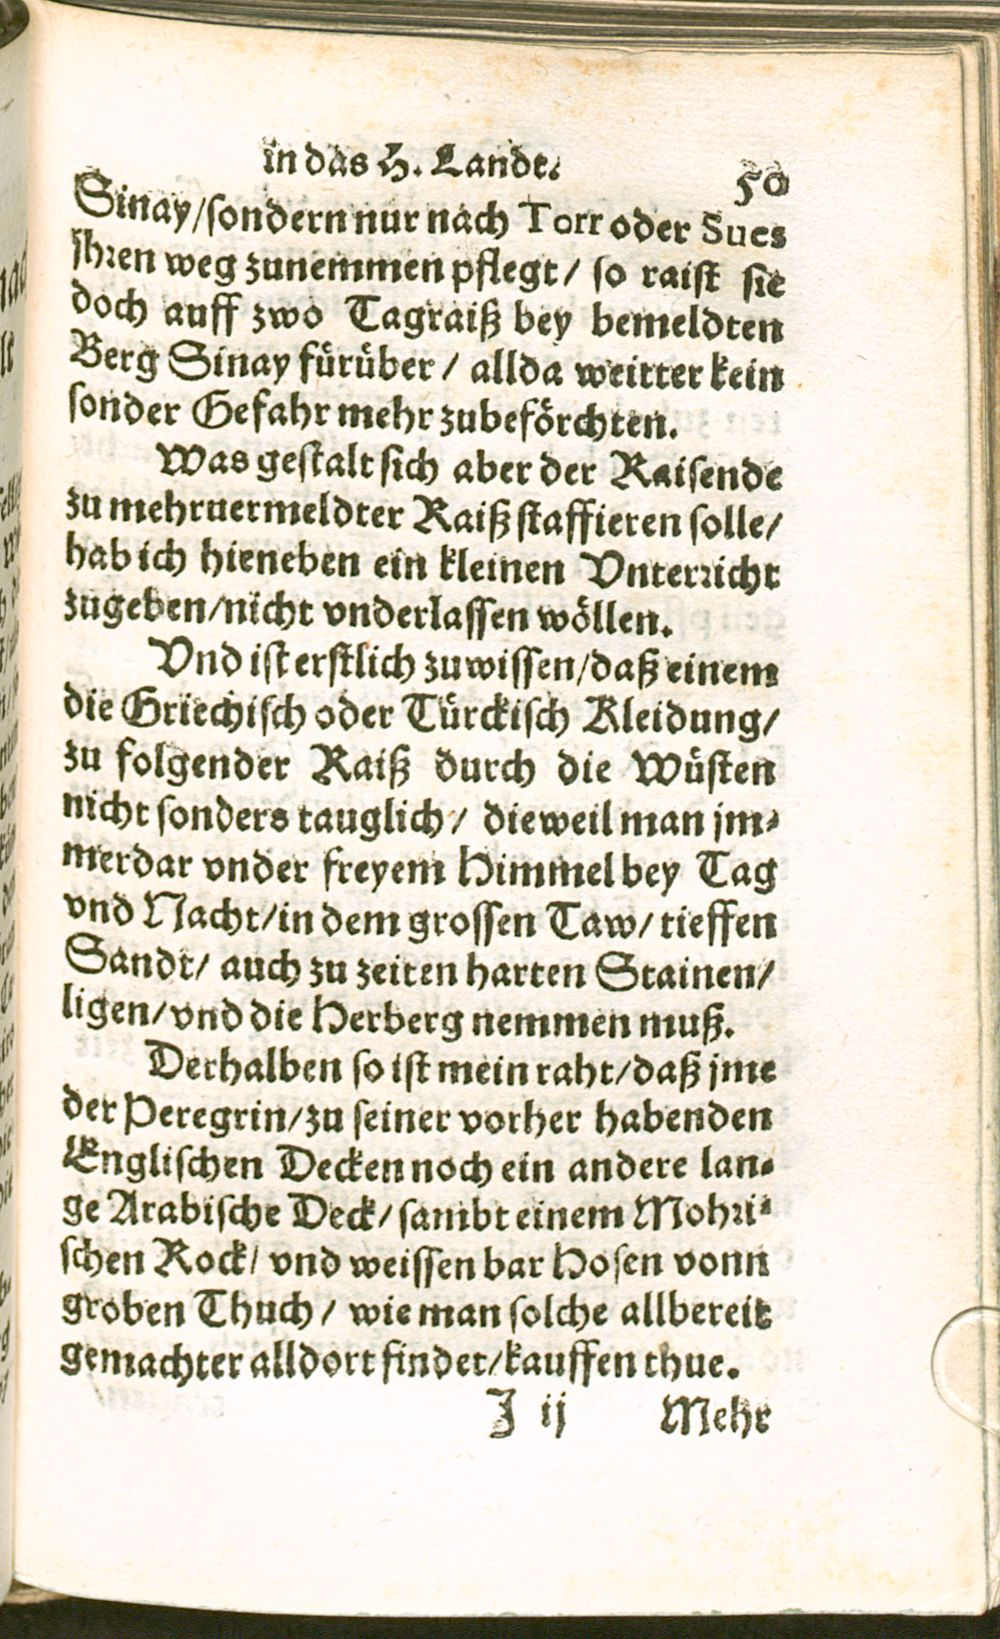 in das H. Landt.
50
Sinay/sondern nur nach Torr oder Sues
jhren weg zunemmen pflegt/ so raist sie
doch auff zwo Tagraiß bey bemeldten
Berg Sinay fürüber/ allda weitter kein
sonder Gefahr mehr zubeförchten.
Was gestalt sich aber der Raisende
zu mehruermeldter Raiß staffieren solle/
hab ich hieneben ein kleinen Vnterricht
zugeben/nicht vnderlassen wöllen.
Vnd ist erstlich zuwissen/daß einem
die Griechisch oder Türckisch Kleidung/
zu folgender Raiß durch die Wüsten
nicht sonders tauglich/ dieweil man jm-
merdar vnder freyem Himmel bey Tag
vnd Nacht/in dem grossen Taw/ tieffen
Sandt/ auch zu zeiten harten Stainen/
ligen/vnd die Herberg nemmen muß.
Derhalben so ist mein raht/daß jme
der Peregrin/zu seiner vorher habenden
Englischen Decken noch ein andere lan-
ge Arabische Deck/ sambt einem Mohri-
schen Rock/ vnd weissen bar Hosen vonn
groben Thuch/ wie man solche allbereit
gemachter alldort findet/kauffen thue.
J ij Mehr